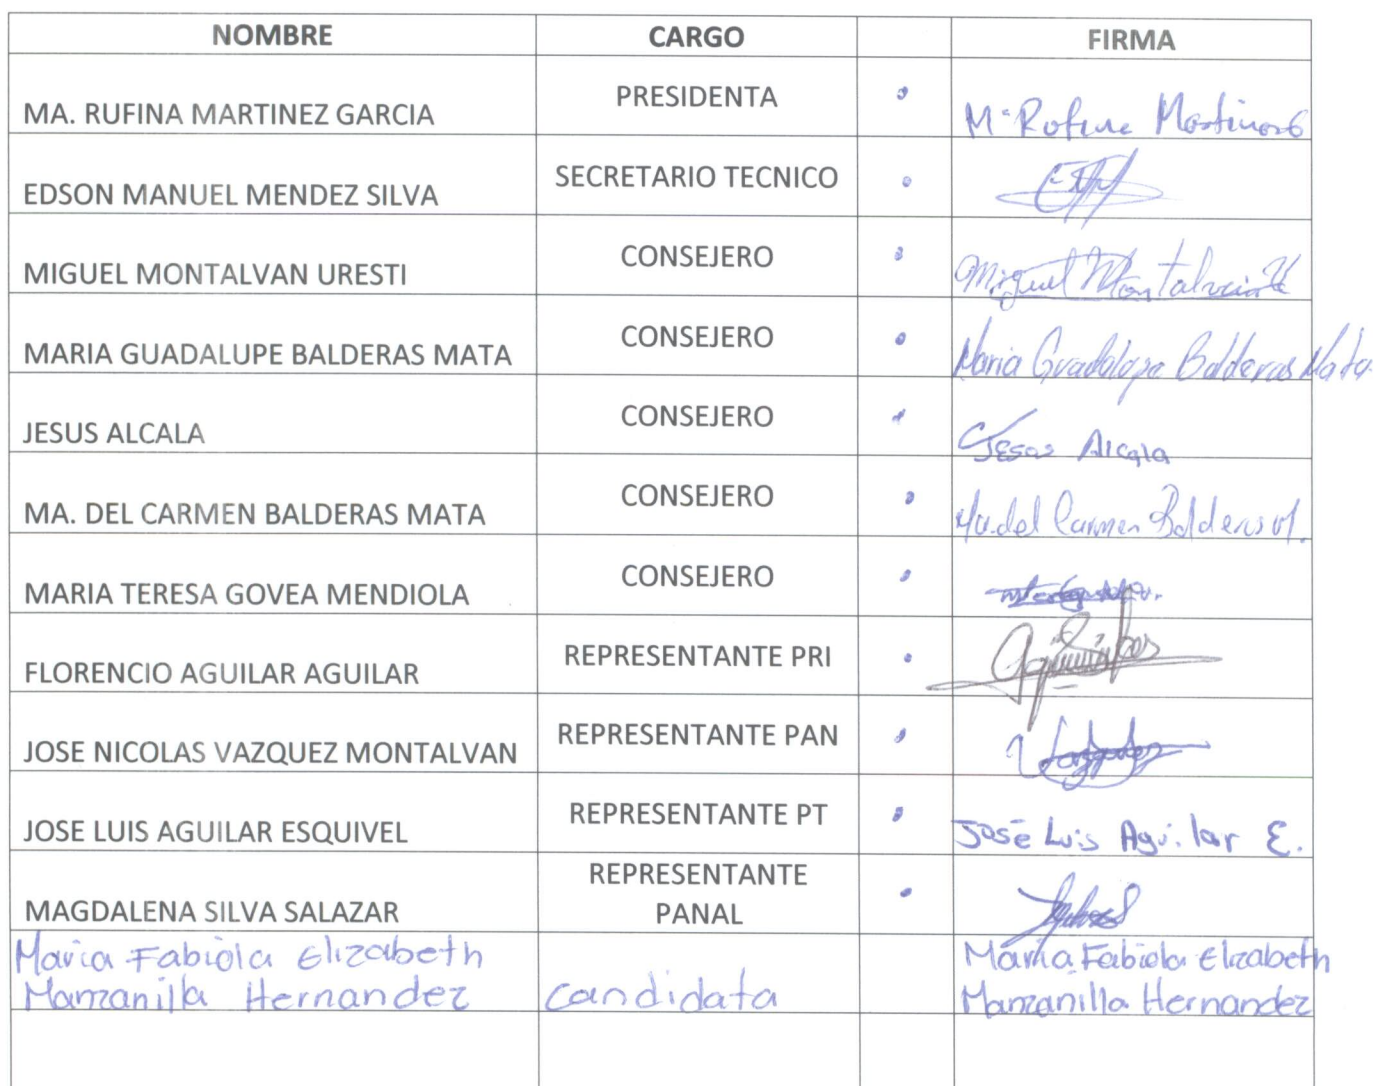 NOMBRE CARGO FIRMA
MA. RUFINA MARTINEZ GARCIA PRESIDENTA Mª Rofina Martinez G
EDSON MANUEL MENDEZ SILVA SECRETARIO TECNICO
MIGUEL MONTALVAN URESTI CONSEJERO Miguel Montalvan U
MARIA GUADALUPE BALDERAS MATA CONSEJERO Maria Guadalupe Balderas Mata
JESUS ALCALA CONSEJERO Jesus Alcala
MA. DEL CARMEN BALDERAS MATA CONSEJERO Ma. del Carmen Balderas M.
MARIA TERESA GOVEA MENDIOLA CONSEJERO
FLORENCIO AGUILAR AGUILAR REPRESENTANTE PRI
JOSE NICOLAS VAZQUEZ MONTALVAN REPRESENTANTE PAN
JOSE LUIS AGUILAR ESQUIVEL REPRESENTANTE PT José Luis Aguilar E.
REPRESENTANTE
MAGDALENA SILVA SALAZAR PANAL
Maria Fabiola Elizabeth Maria Fabiola Elizabeth
Manzanilla Hernandez candidata Manzanilla Hernandez